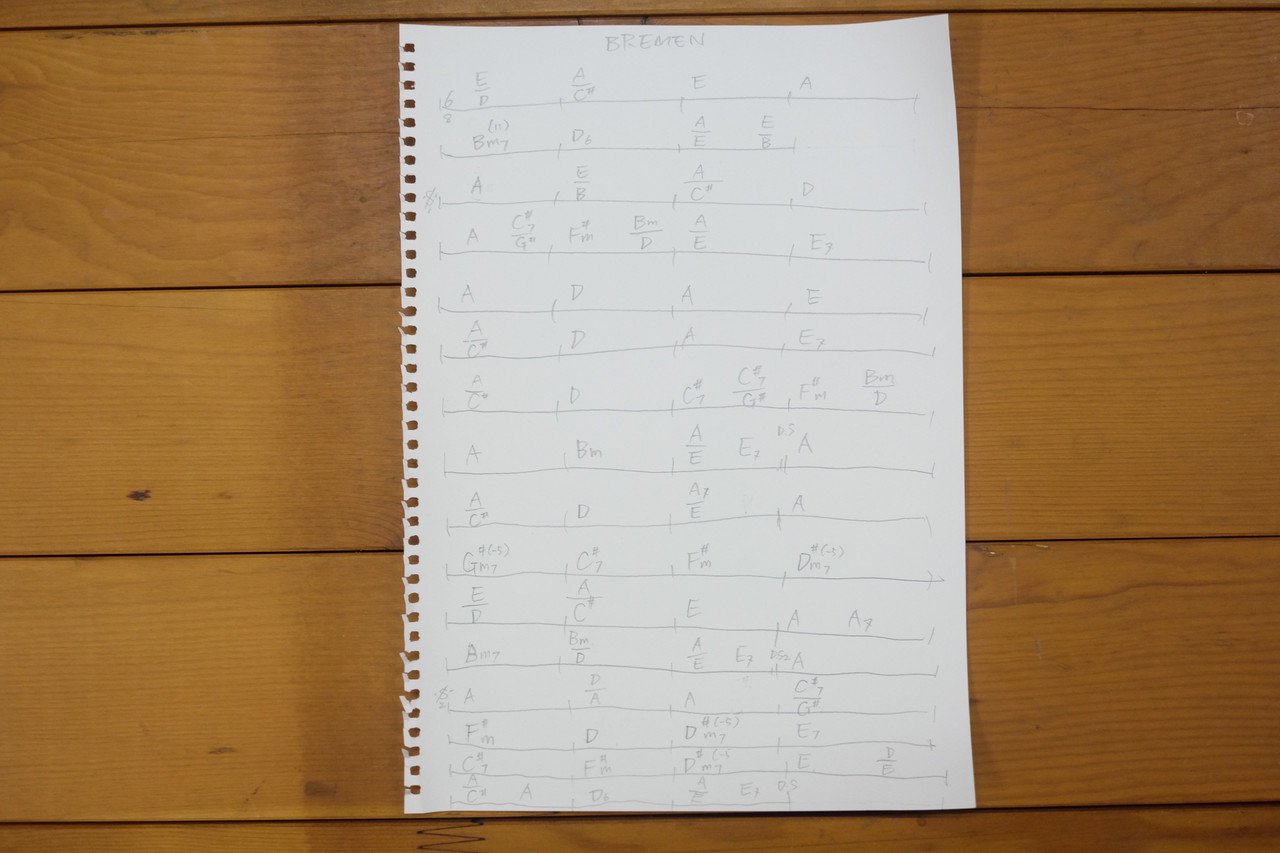 BREMEN
6/8 E/D A/C# E A
Bm7(11) D6 A/E E/B
A E/B A/C# D
A C#7/G# F#m Bm/D A/E E7
A D A E
A/C# D A E7
A/C# D C#7 C#7/G# F#m Bm/D
A Bm A/E E7 D.S A
A/C# D A7/E A
G#m7(-5) C#7 F#m D#m7(-5)
E/D A/C# E A A7
Bm7 Bm/D A/E E7 DS2 A
2 A D/A A C#7/G#
F#m D D#m7(-5) E7
C#7 F#m D#m7(-5 E D/E
A/C# A D6 A/E E7 D.S